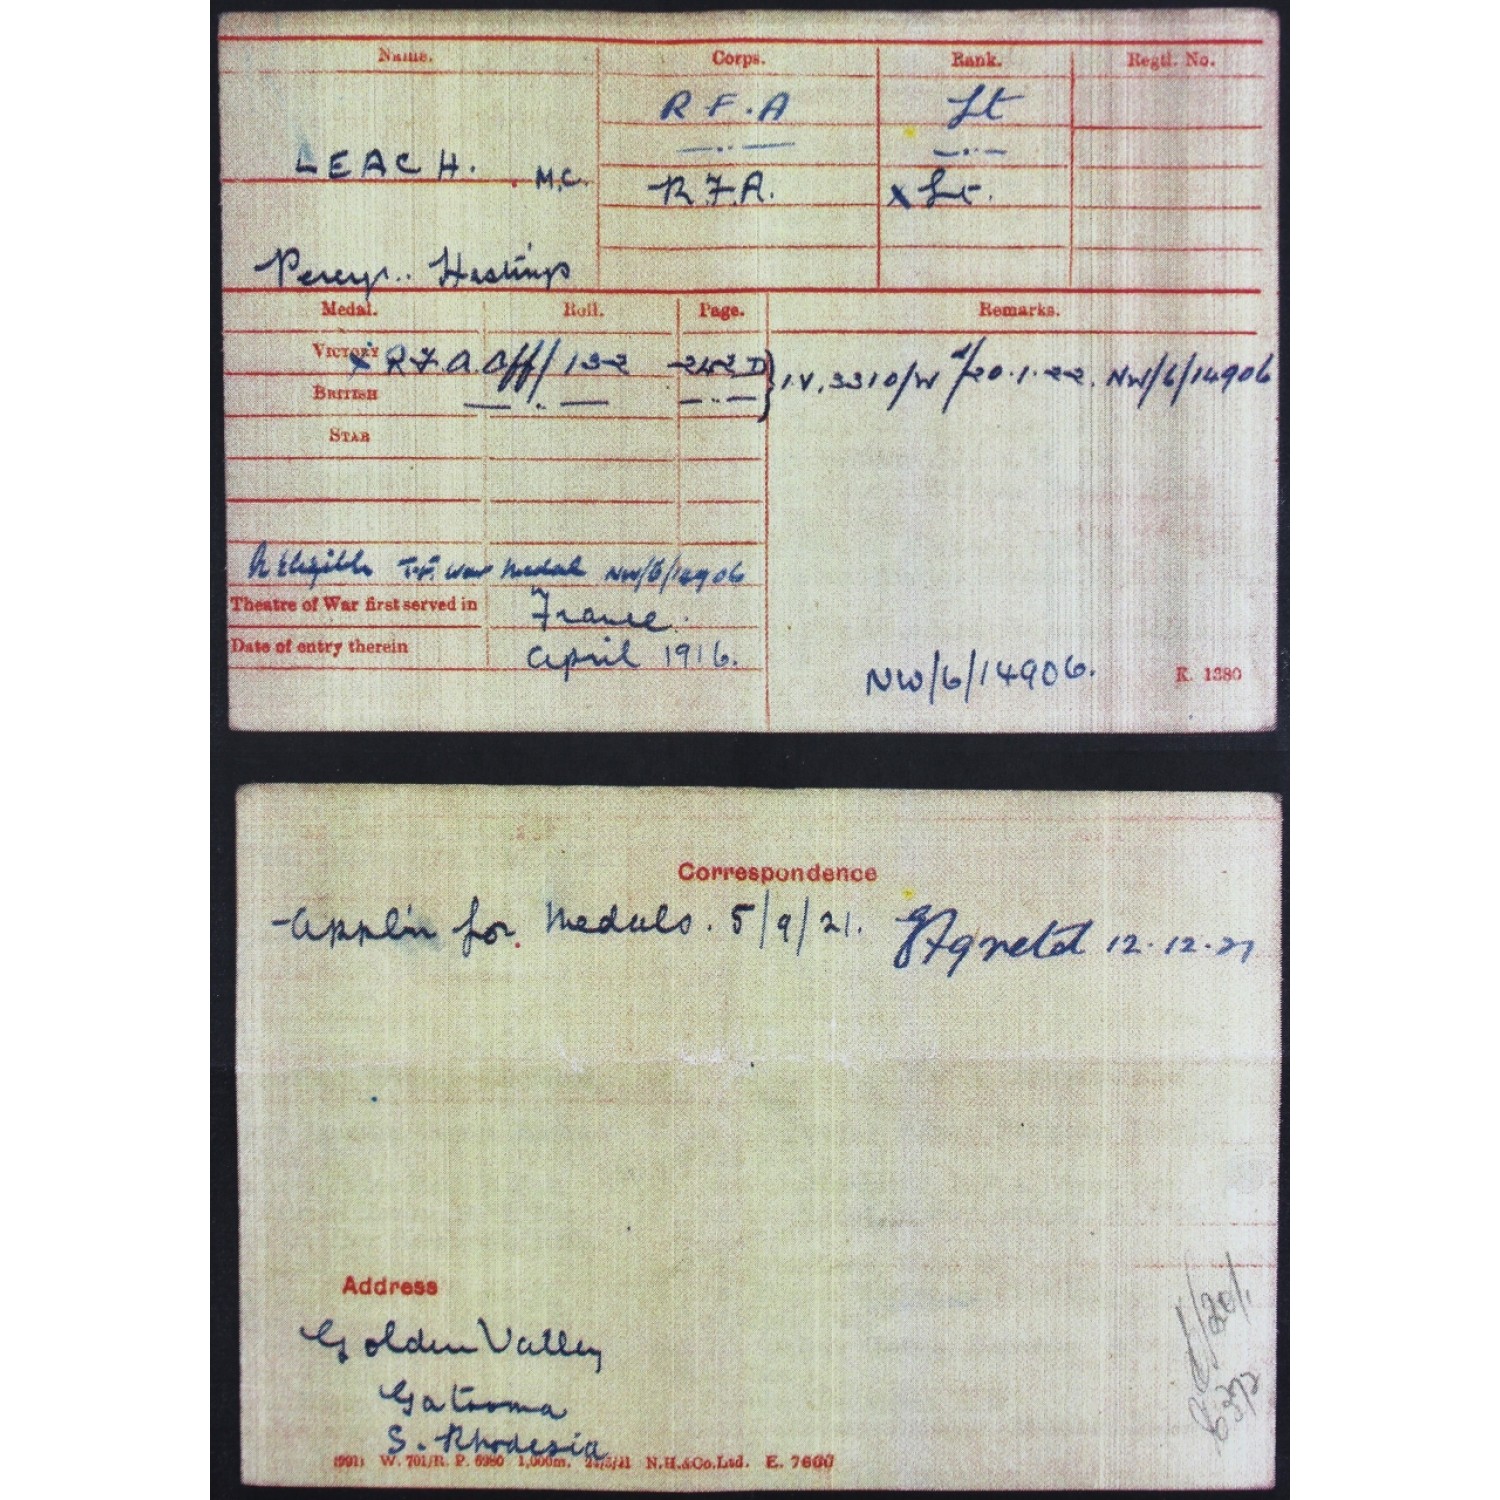 Name. Corps. Rank. Regtl. No.
R F.A Lt
LEACH. M.C. R.F.A. x Lt.
Percy.. Hastings
Medal. Roll. Page. Remarks.
VICTORY x R.F.A. Off/132 242 D } I.V. 3310/W d/20.1.22. NW/6/14906
BRITISH
STAR
Eligible T.F. War Medal NW/6/14906
Theatre of War first served in France.
Date of entry therein April 1916.
NW/6/14906. K. 1380
Correspondence
Appl'n for Medals. 5/9/21. 12.12.21
Address
Golden Valley
Gatooma
S. Rhodesia
(991) W. 701/R. P. 6980 1,000m. /5/21 N.H.&Co.Ltd. E. 7600